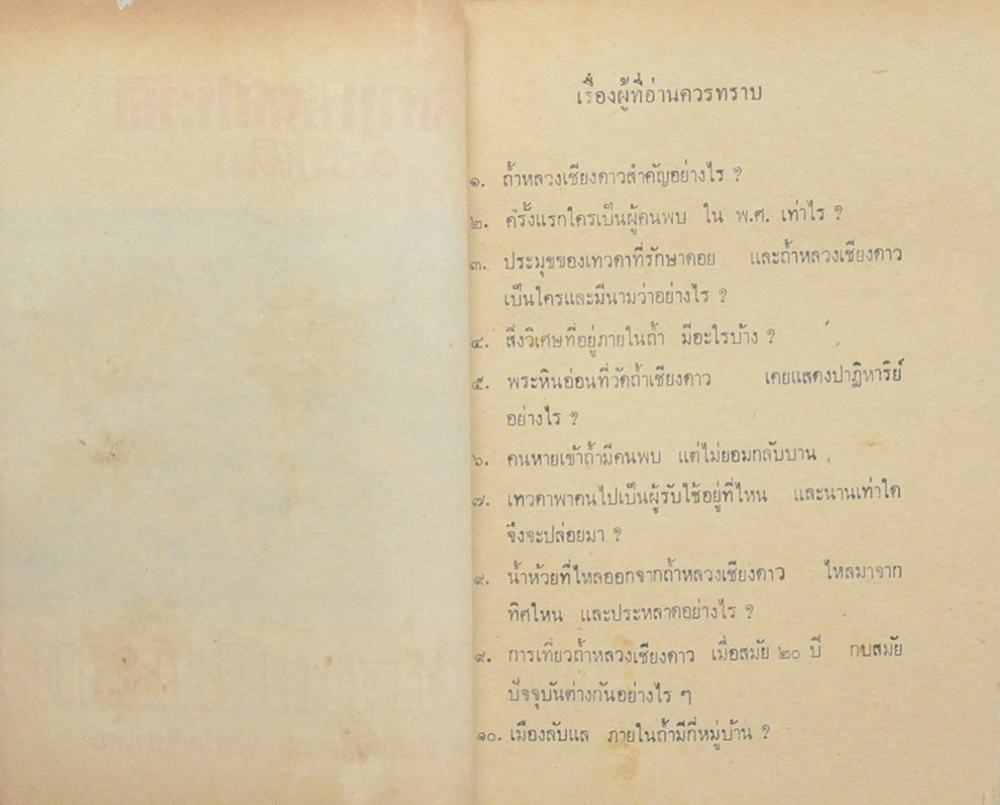 เรื่องผู้ที่อ่านควรทราบ
๑. ถ้ำหลวงเชียงดาวสำคัญอย่างไร ?
๒. ครั้งแรกใครเป็นผู้คนพบ ใน พ.ศ. เท่าไร ?
๓. ประมุขของเทวดาที่รักษาดอย และถ้ำหลวงเชียงดาว
เป็นใครและมีนามว่าอย่างไร ?
๔. สิ่งวิเศษที่อยู่ภายในถ้ำ มีอะไรบ้าง ?
๕. พระหินอ่อนที่วัดถ้ำเชียงดาว เคยแสดงปาฏิหาริย์
อย่างไร ?
๖. คนหายเข้าถ้ำมีคนพบ แต่ไม่ยอมกลับบาน
๗. เทวดาพาคนไปเป็นผู้รับใช้อยู่ที่ไหน และนานเท่าใด
จึงจะปล่อยมา ?
๘. น้ำห้วยที่ไหลออกจากถ้ำหลวงเชียงดาว ไหลมาจาก
ทิศไหน และประหลาดอย่างไร ?
๙. การเที่ยวถ้ำหลวงเชียงดาว เมื่อสมัย ๒๐ ปี กบสมัย
ปัจจุบันต่างกันอย่างไร ๆ
๑๐. เมืองลับแล ภายในถ้ำมีกี่หมู่บ้าน ?